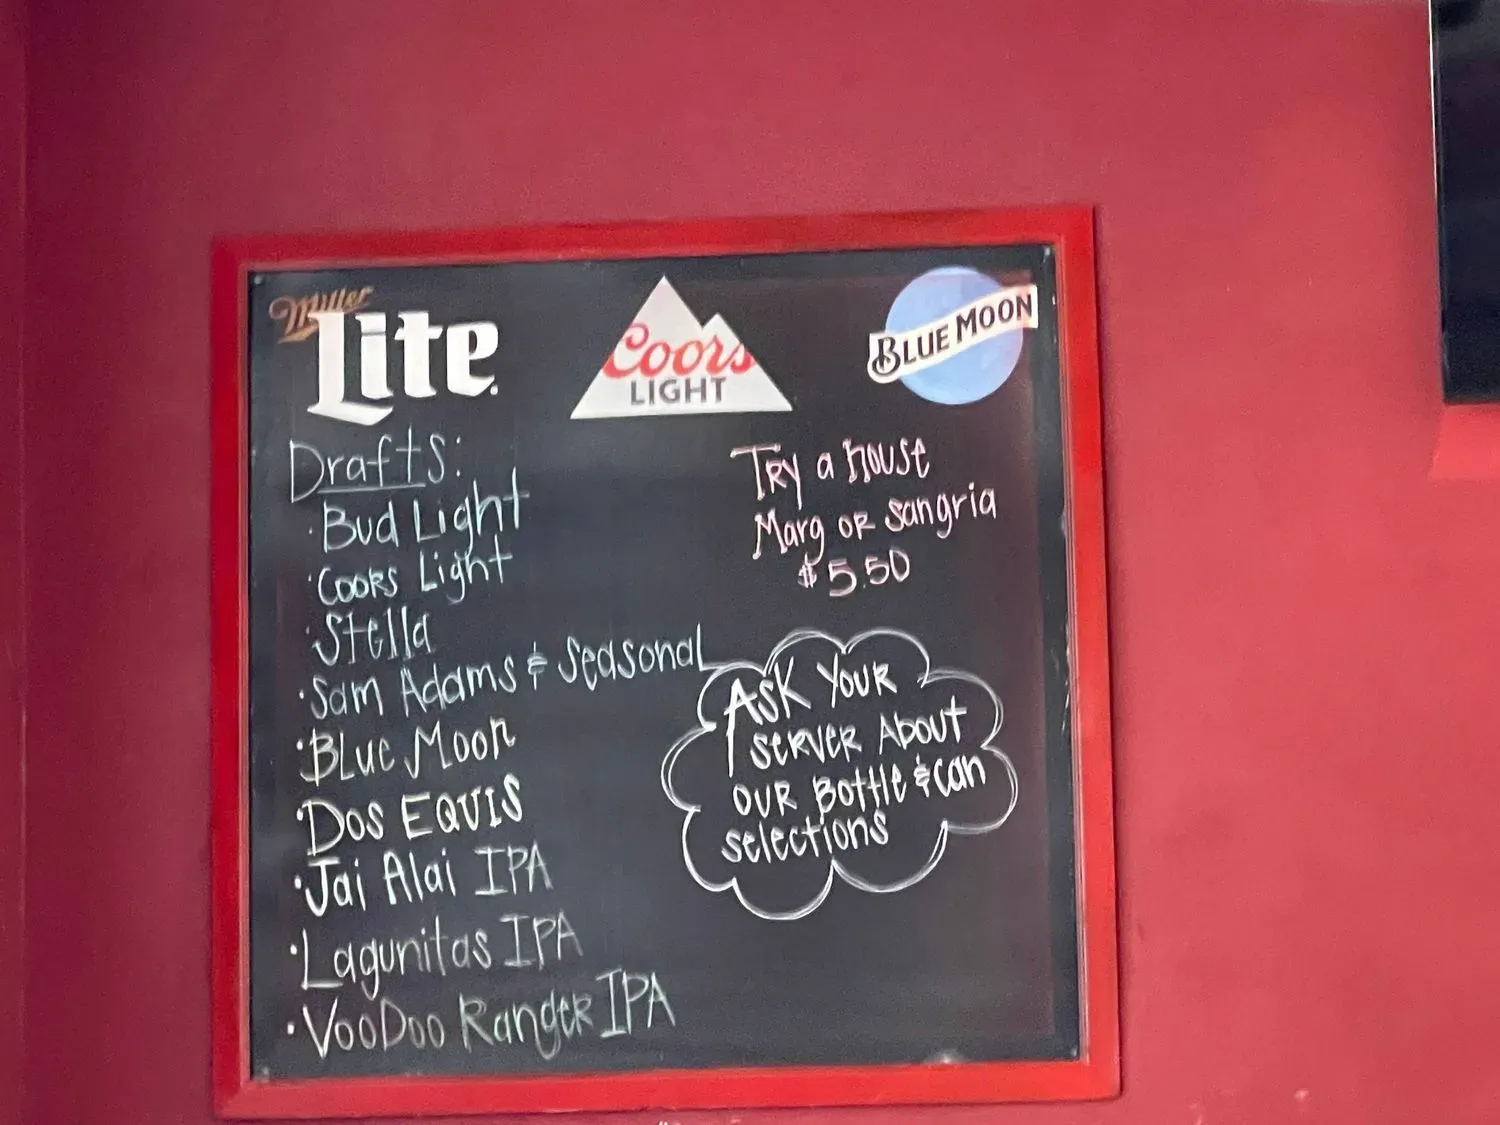 Miller
Lite
Coors
LIGHT
BLUE MOON
Drafts:
· Bud Light
· Coors Light
· Stella
· Sam Adams & Seasonal
· Blue Moon
· Dos EQUIS
· Jai Alai IPA
· Lagunitas IPA
· VooDoo Ranger IPA
Try a house
Marg or sangria
$5.50
Ask Your
server About
our Bottle & can
selections